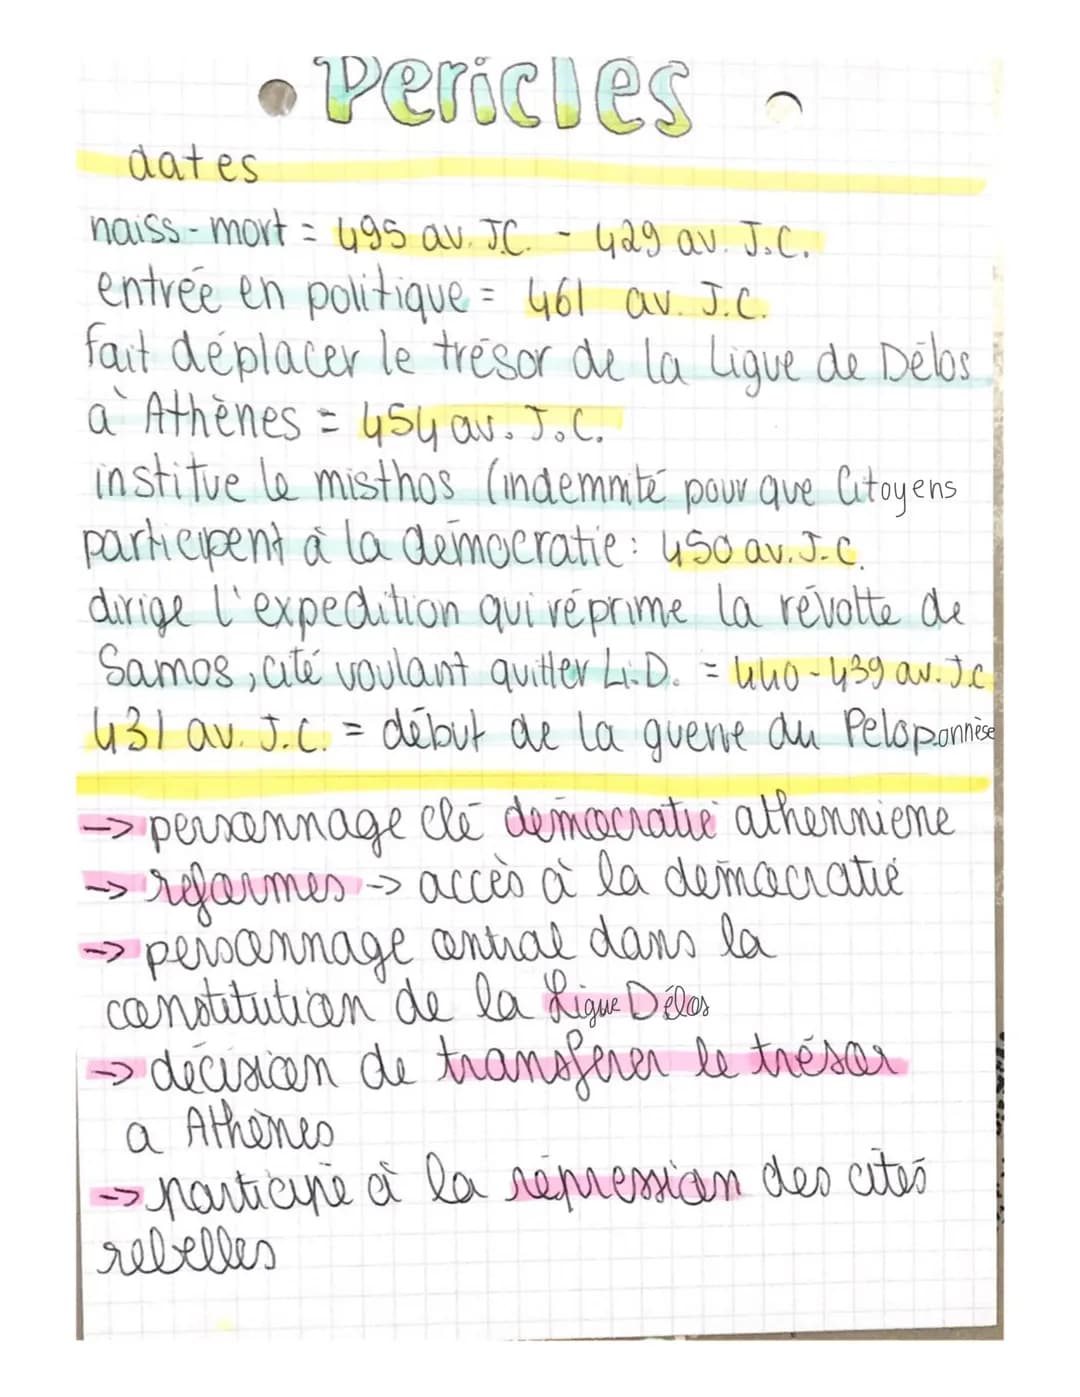 Pericles
dates
naiss-mort = 495 av. J.C. - 429 av. J.C.
entrée en politique = 461 av. J.C.
fait déplacer le trésor de la Ligue de Délos
à Athènes = 454 av. J.C.
institue le misthos (indemnité pour que Citoyens
participent à la démocratie: 450 av. J-C.
dirige l'expedition qui réprime la révolte de
Samos, cité voulant quitter L.D. = 440-439 av. J.C
431 av. J.C. = début de la guerre du Peloponnèse
-> personnage clé démocratie athenniene
-> reformes -> accès à la démocratie
-> personnage central dans la
constitution de la Ligue Délos
-> décision de transférer le trésor
a Athènes
-> participe à la répression des cités
rebelles